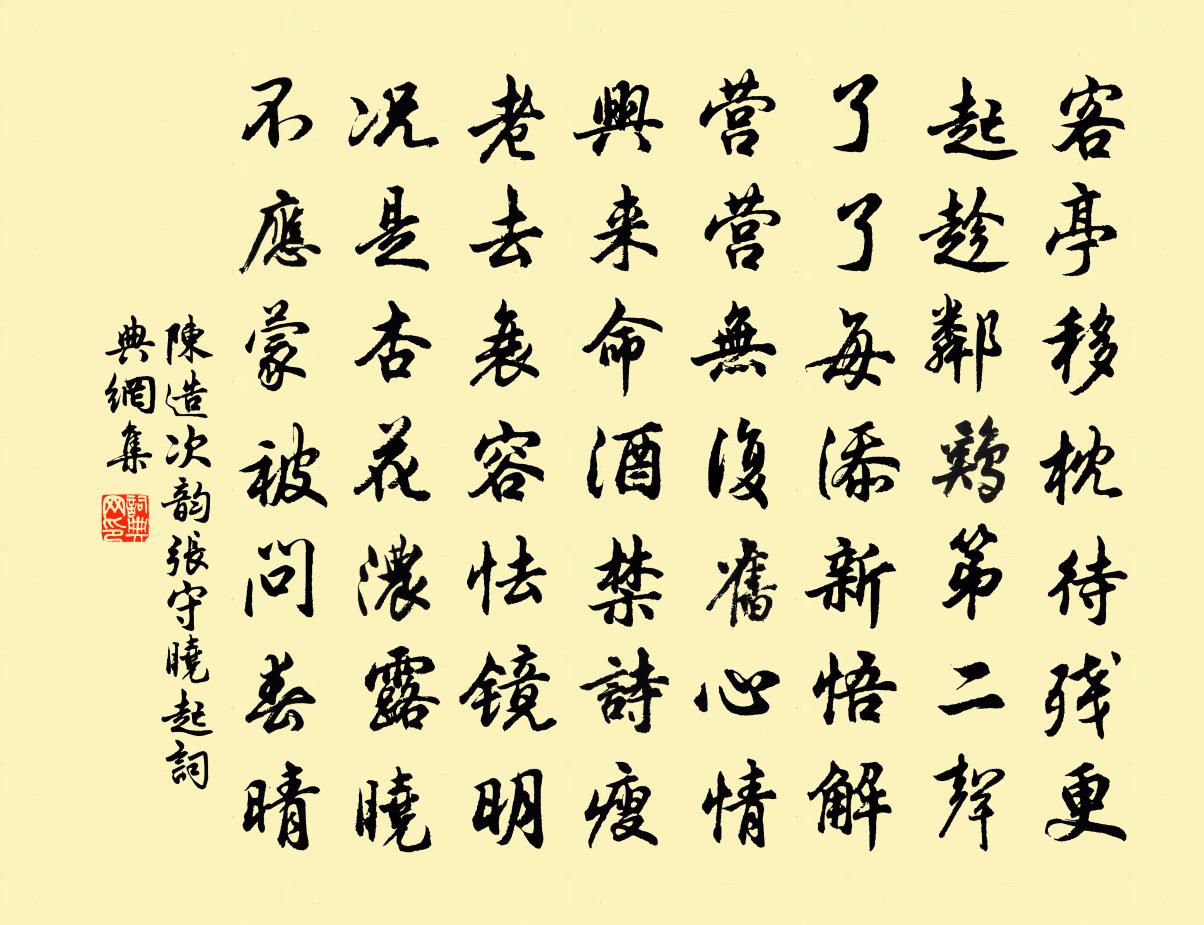 客亭移枕待残更
起趁鄰鷄第二聲
了了每添新悟解
营营無復舊心情
興来命酒禁詩瘦
老去衰容怯镜明
况是杏花濃露曉
不應蒙被問春晴
陳造次韵張守曉起詞
典網集
詞典
网印